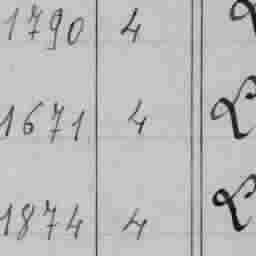 1790 4
1671 4
1874 4